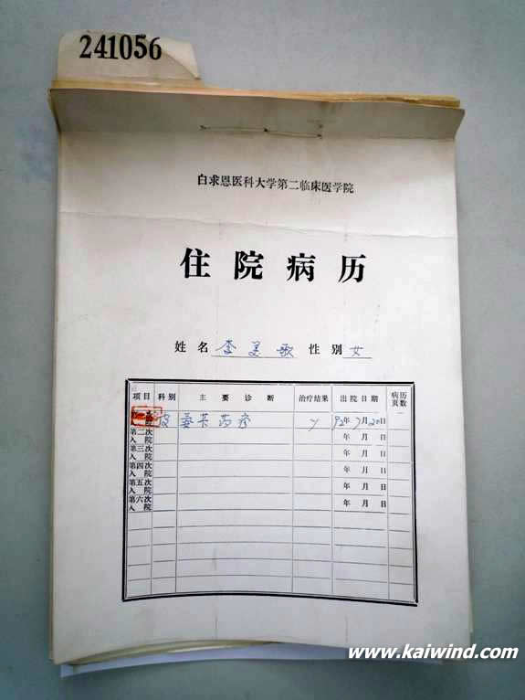 241056
白求恩医科大学第二临床医学院
住院病历
姓名 李美歌 性别 女
项目 科别 主要诊断 治疗结果 出院日期 病历页数
皮 92年7月20日
第二次入院 年月日
第三次入院 年月日
第四次入院 年月日
第五次入院 年月日
第六次入院 年月日
www.kaiwind.com